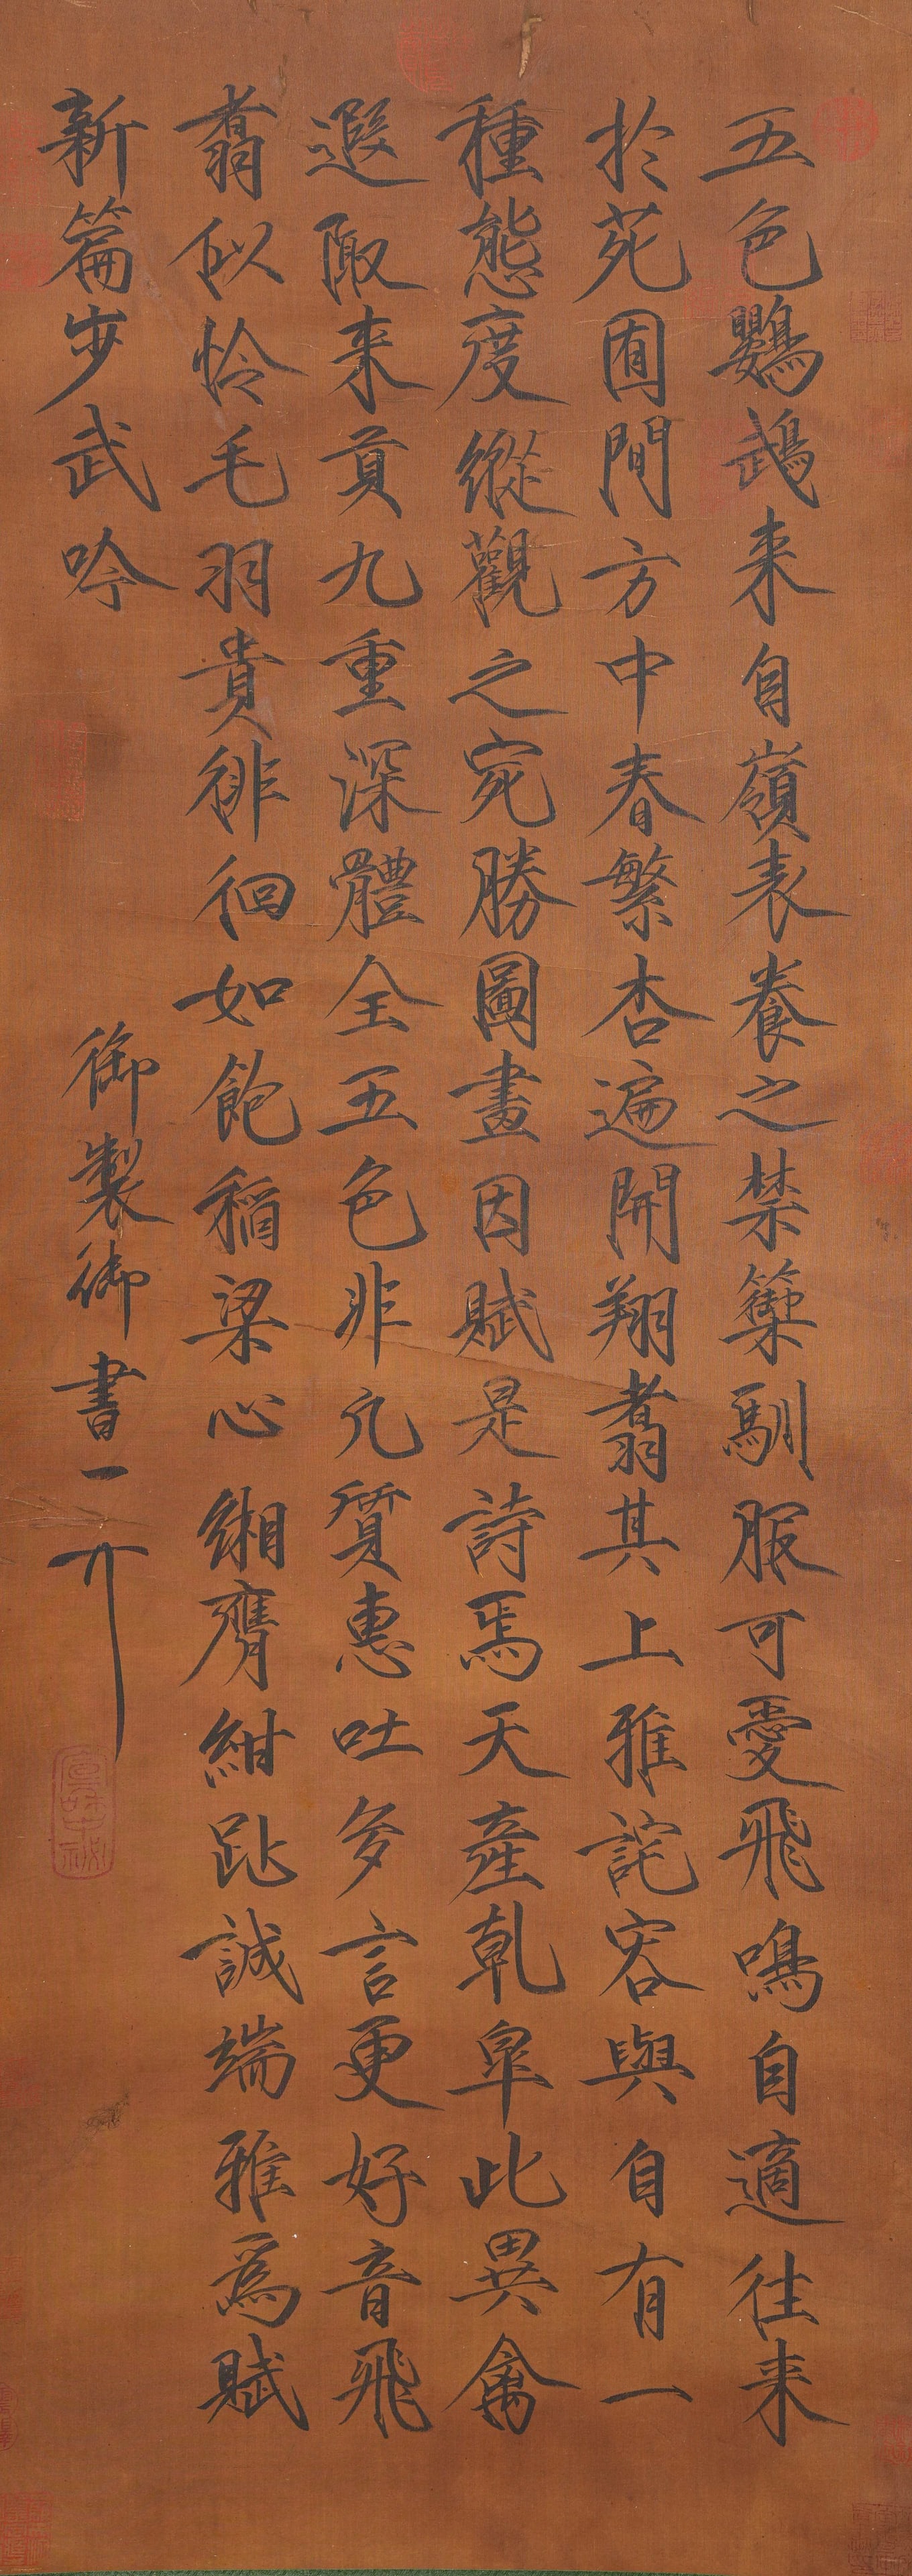 五色鸚鵡来自嶺表養之禁籞馴服可愛飛鳴自適往来
於苑囿間方中春繁杏遍開翔翥其上雅詫容與自有一
種態度縱觀之宛勝圖畫因賦是詩焉天產乾皐此異禽
遐陬来貢九重深體全五色非凡質惠吐多言更好音飛
翥似怜毛羽貴徘徊如飽稻粱心緗膺紺趾誠端雅爲賦
新篇步武吟
御製御書